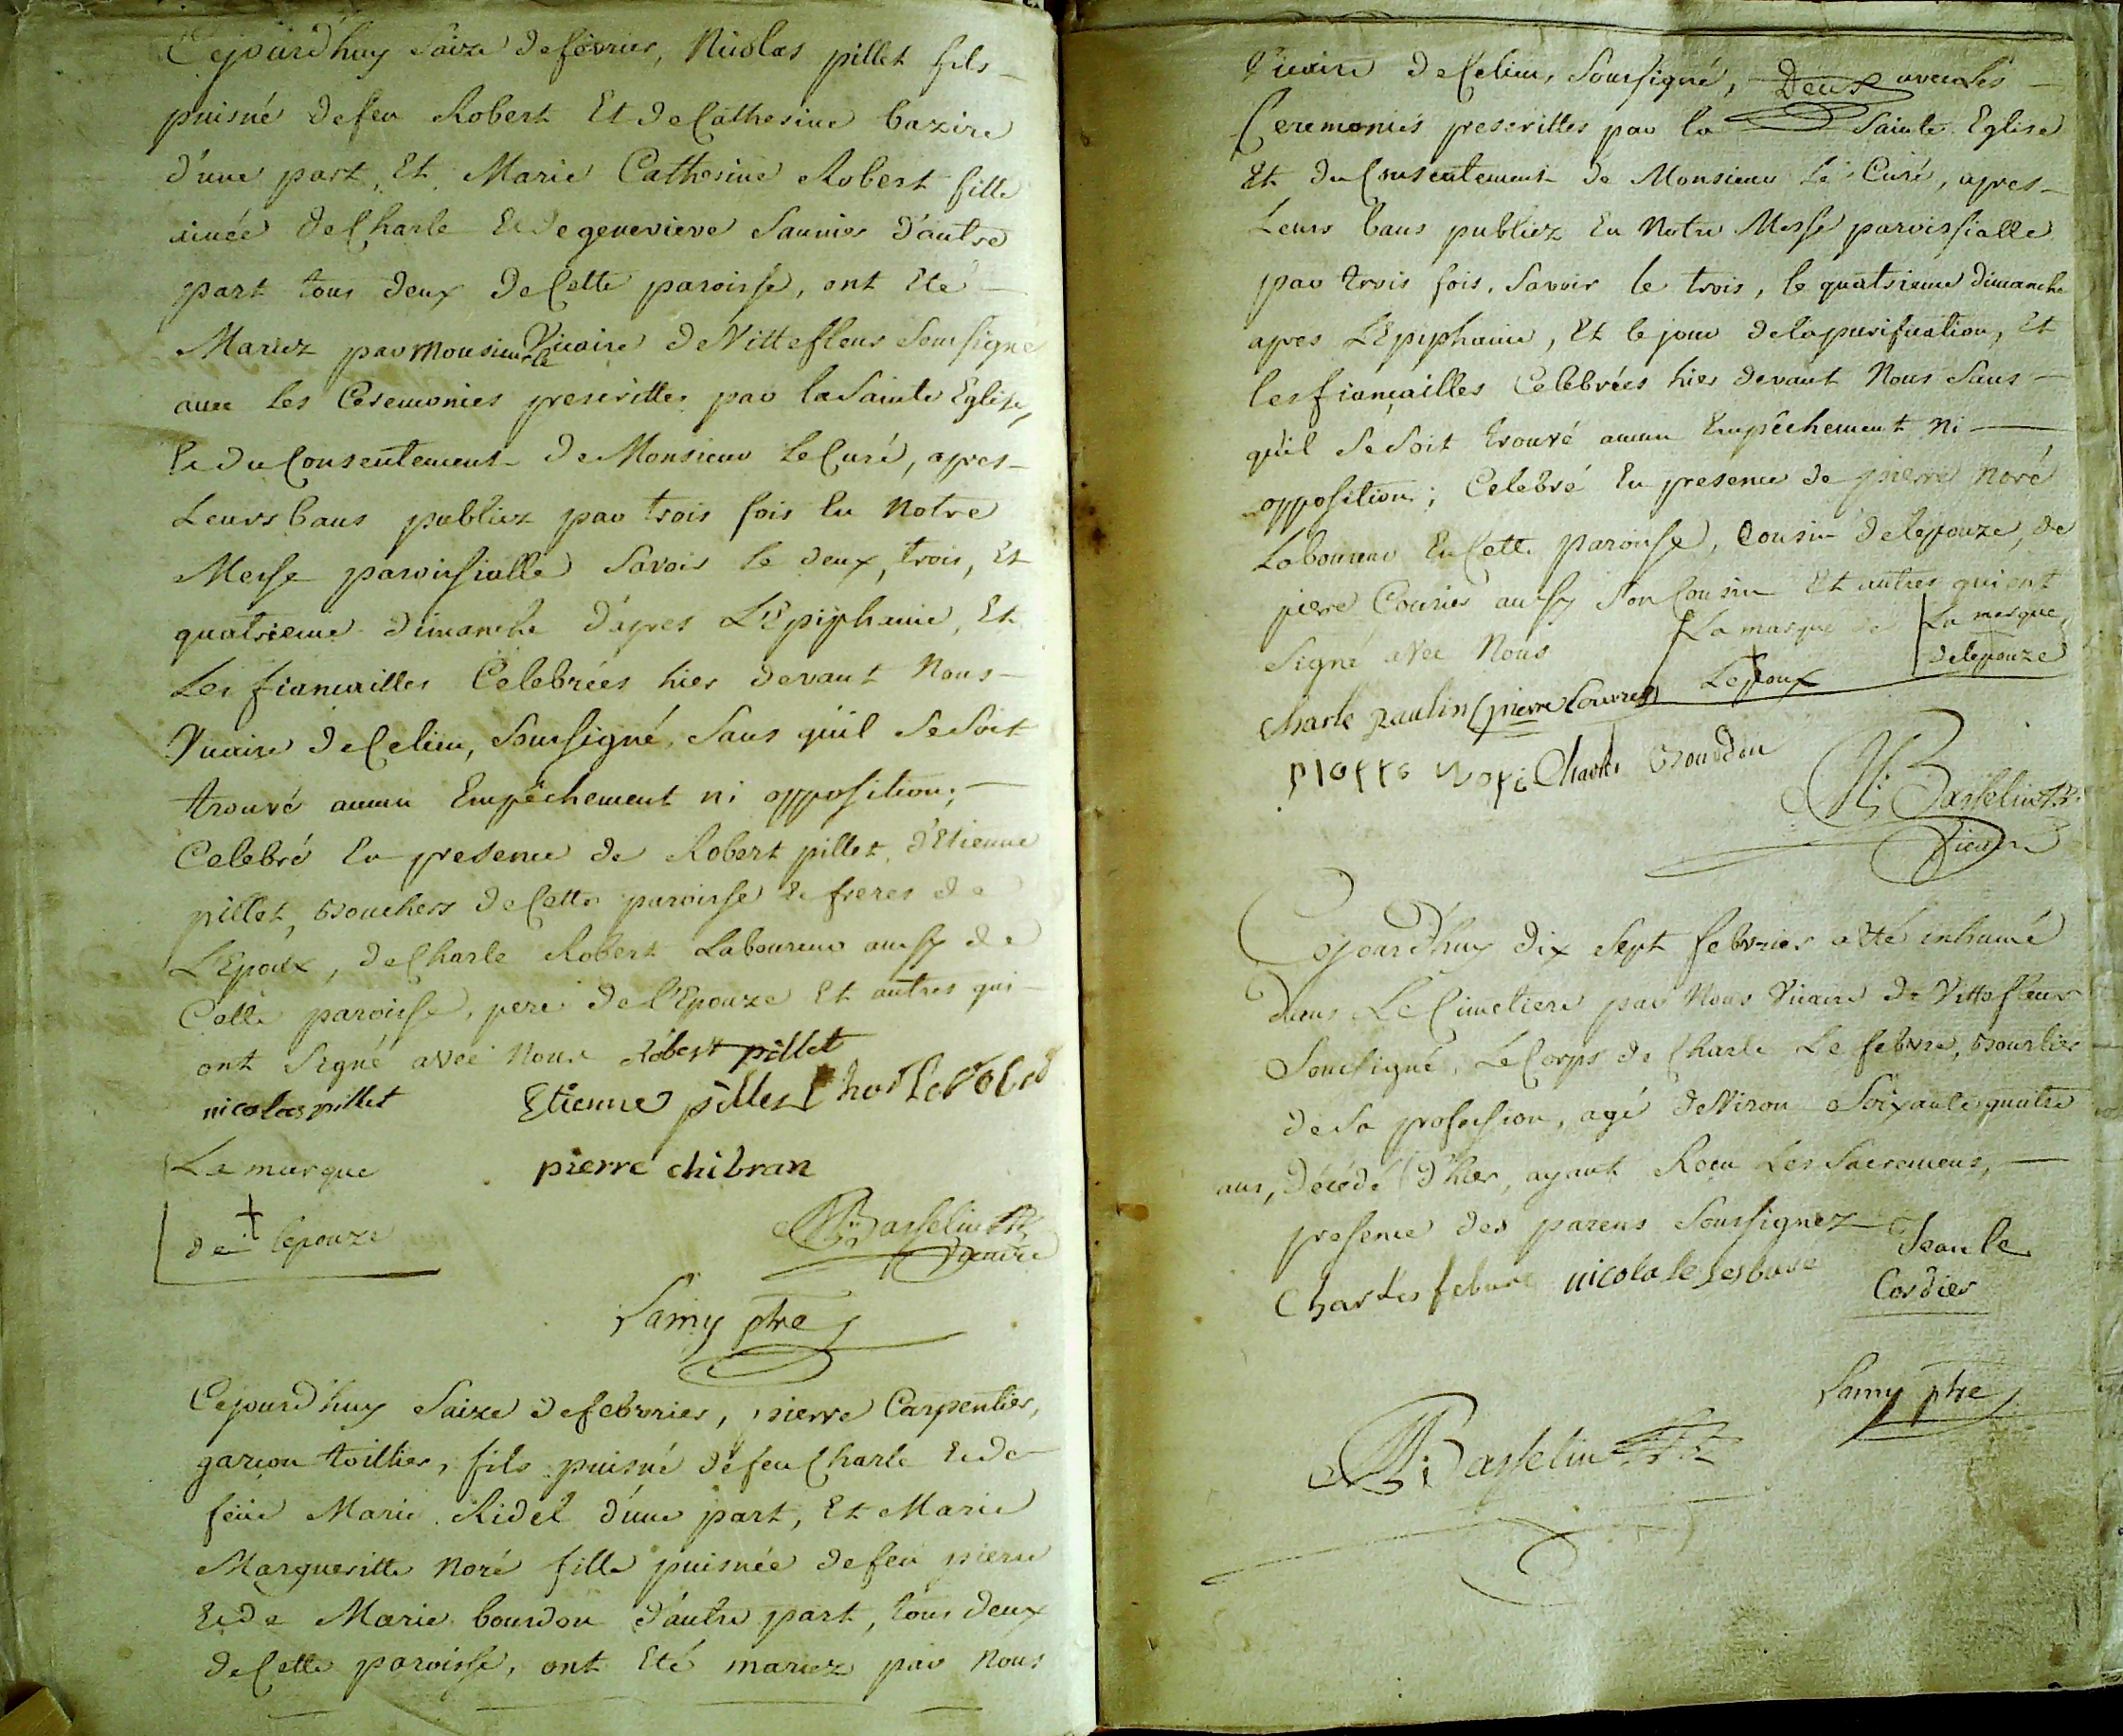 Cejourd'huy Saize de fevrier, Nicolas pillet fils
puisné de feu Robert Et de Catherine bazire
d'une part, Et Marie Catherine Robert fille
ainée de Charle Et de genevieve Saunier d'autre
part tous deux de Cette paroisse, ont Eté
Mariez par Monsieur le Vicaire de Vittefleur Soussigné
avec Les Ceremonies prescrittes par la Sainte Eglise,
Et du Consentement de Monsieur Le Curé, apres
Leurs bans publiez par trois fois En Notre
Messe paroissialle Savoir le deux, trois, Et
quatrieme dimanche d'apres L'Epiphanie, Et
Les fiancailles Celebrées hier devant Nous
Vicaire de Ce lieu, Soussigné, Sans qu'il Se Soit
trouvé aucun Empêchement ni opposition;
Celebré En presence de Robert pillet, d'Etienne
pillet, bouchers de Cette paroisse Et freres de
L'Epoux, de Charle Robert Laboureur aussy de
Cette paroisse, pere de l'Epouze Et autres qui
ont Signé avec Nous Robert pillet
nicolas pillet Etienne pillet Charle Robert
La marque pierre chibran
de + lepouze N: Basselin Ptr.
Vicaire
Samy ptre
Cejourd'huy Saize de febvrier, pierre Carpentier,
garçon toillier, fils puisné de feu Charle Et de
feüe Marie Ridel d'une part, Et Marie
Margueritte Noré fille puisnée de feu pierre
Et de Marie bourdon d'autre part, tous deux
de Cette paroisse, ont Eté mariez par Nous
Vicaire de Ce lieu, Soussigné, Deux avec Les
Ceremonies prescrittes par la Sainte Eglise
Et du Consentement de Monsieur Le Curé, apres
Leurs bans publiez En Notre Messe paroissialle
par trois fois, Savoir le trois, le quatrieme dimanche
apres L'Epiphanie, Et le jour de la purification, Et
les fiançailles Celebrées hier devant Nous Sans
qu'il Se Soit trouvé aucun Empêchement ni
opposition; Celebré En presence de pierre Noré
Laboureur En Cette paroisse, Cousin de lepouze, de
pierre Couries aussy Son Cousin Et autres qui ont
Signé avec Nous La marque de + Lepoux La marque de lepouze
Charle paulin pierre Couries
pierre Noré Charles bourdon
N: Basselin Ptr.
Vicaire
Cejourd'huy dix Sept febvrier a Eté inhumé
dans Le Cimetiere par Nous Vicaire de Vittefleur
Soussigné, Le Corps de Charle Le febvre, bourlier
de Sa profession, agé d'Viron Soixante quatre
ans, décédé d'hier, ayant Recu Les Sacremens,
presence des parens Soussignez Jean le
Charles febvre nicola le Cordier
Samy ptre
N: Basselin Ptr